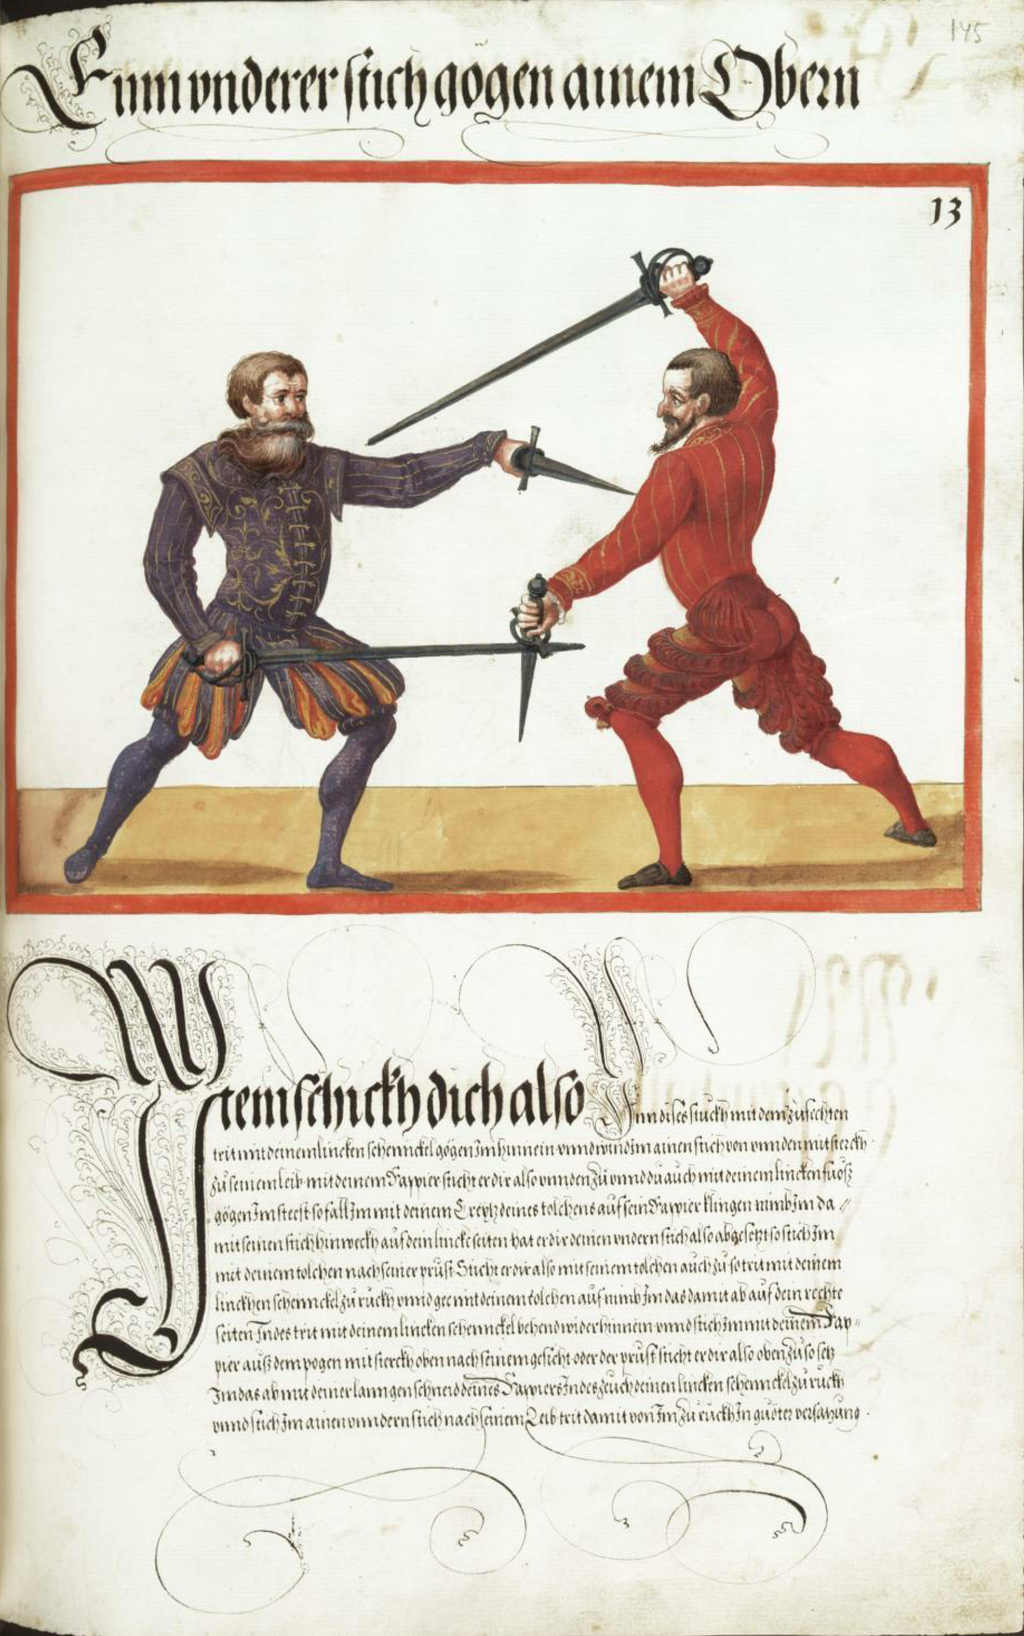 145
Ein vnnderer stich gögen ainem Obern
13
Item schickh dich also Inn dises stuckh mit dem zufechten
trit mit deinem lincken schennckel gögen Im hinnein vnnd wind Im ainen stich von vnnden mit sterckh
zu seinem leib mit deinem Rappier sticht er dir also vnnden zu vnnd du auch mit deinem lincken fuosz
gögen Im steest so fall Im mit deinem Creytz deines tolchens auf sein Rappier klingen nimb Im da //
mit seinen stich hinweckh auf dein lincke seiten hat er dir deinen vndern stich also abgesetzt so stich Im
mit deinem tolchen nach seiner prust Sticht er dir also mit seinem tolchen auch zu so trit mit deinem
linckhen schennckel zu ruckh vnnd gee mit deinem tolchen auf nimb Im das damit ab auf dein rechte
seiten Indes trit mit deinem lincken schennckel behend wider hinnein vnnd stich Im mit deinem Rap=
pier ausz dem pogen mit sterckh oben nach seinem gesicht oder der prust sticht er dir also oben zu so setz
Im das ab mit deiner lanngen schneid deines Rappiers Indes zeuch deinen lincken schennckel zu ruckh
vnnd stich Im ainen vnndern stich nach seinem Leib trit damit von Im zu ruckh In guoter versatzung .